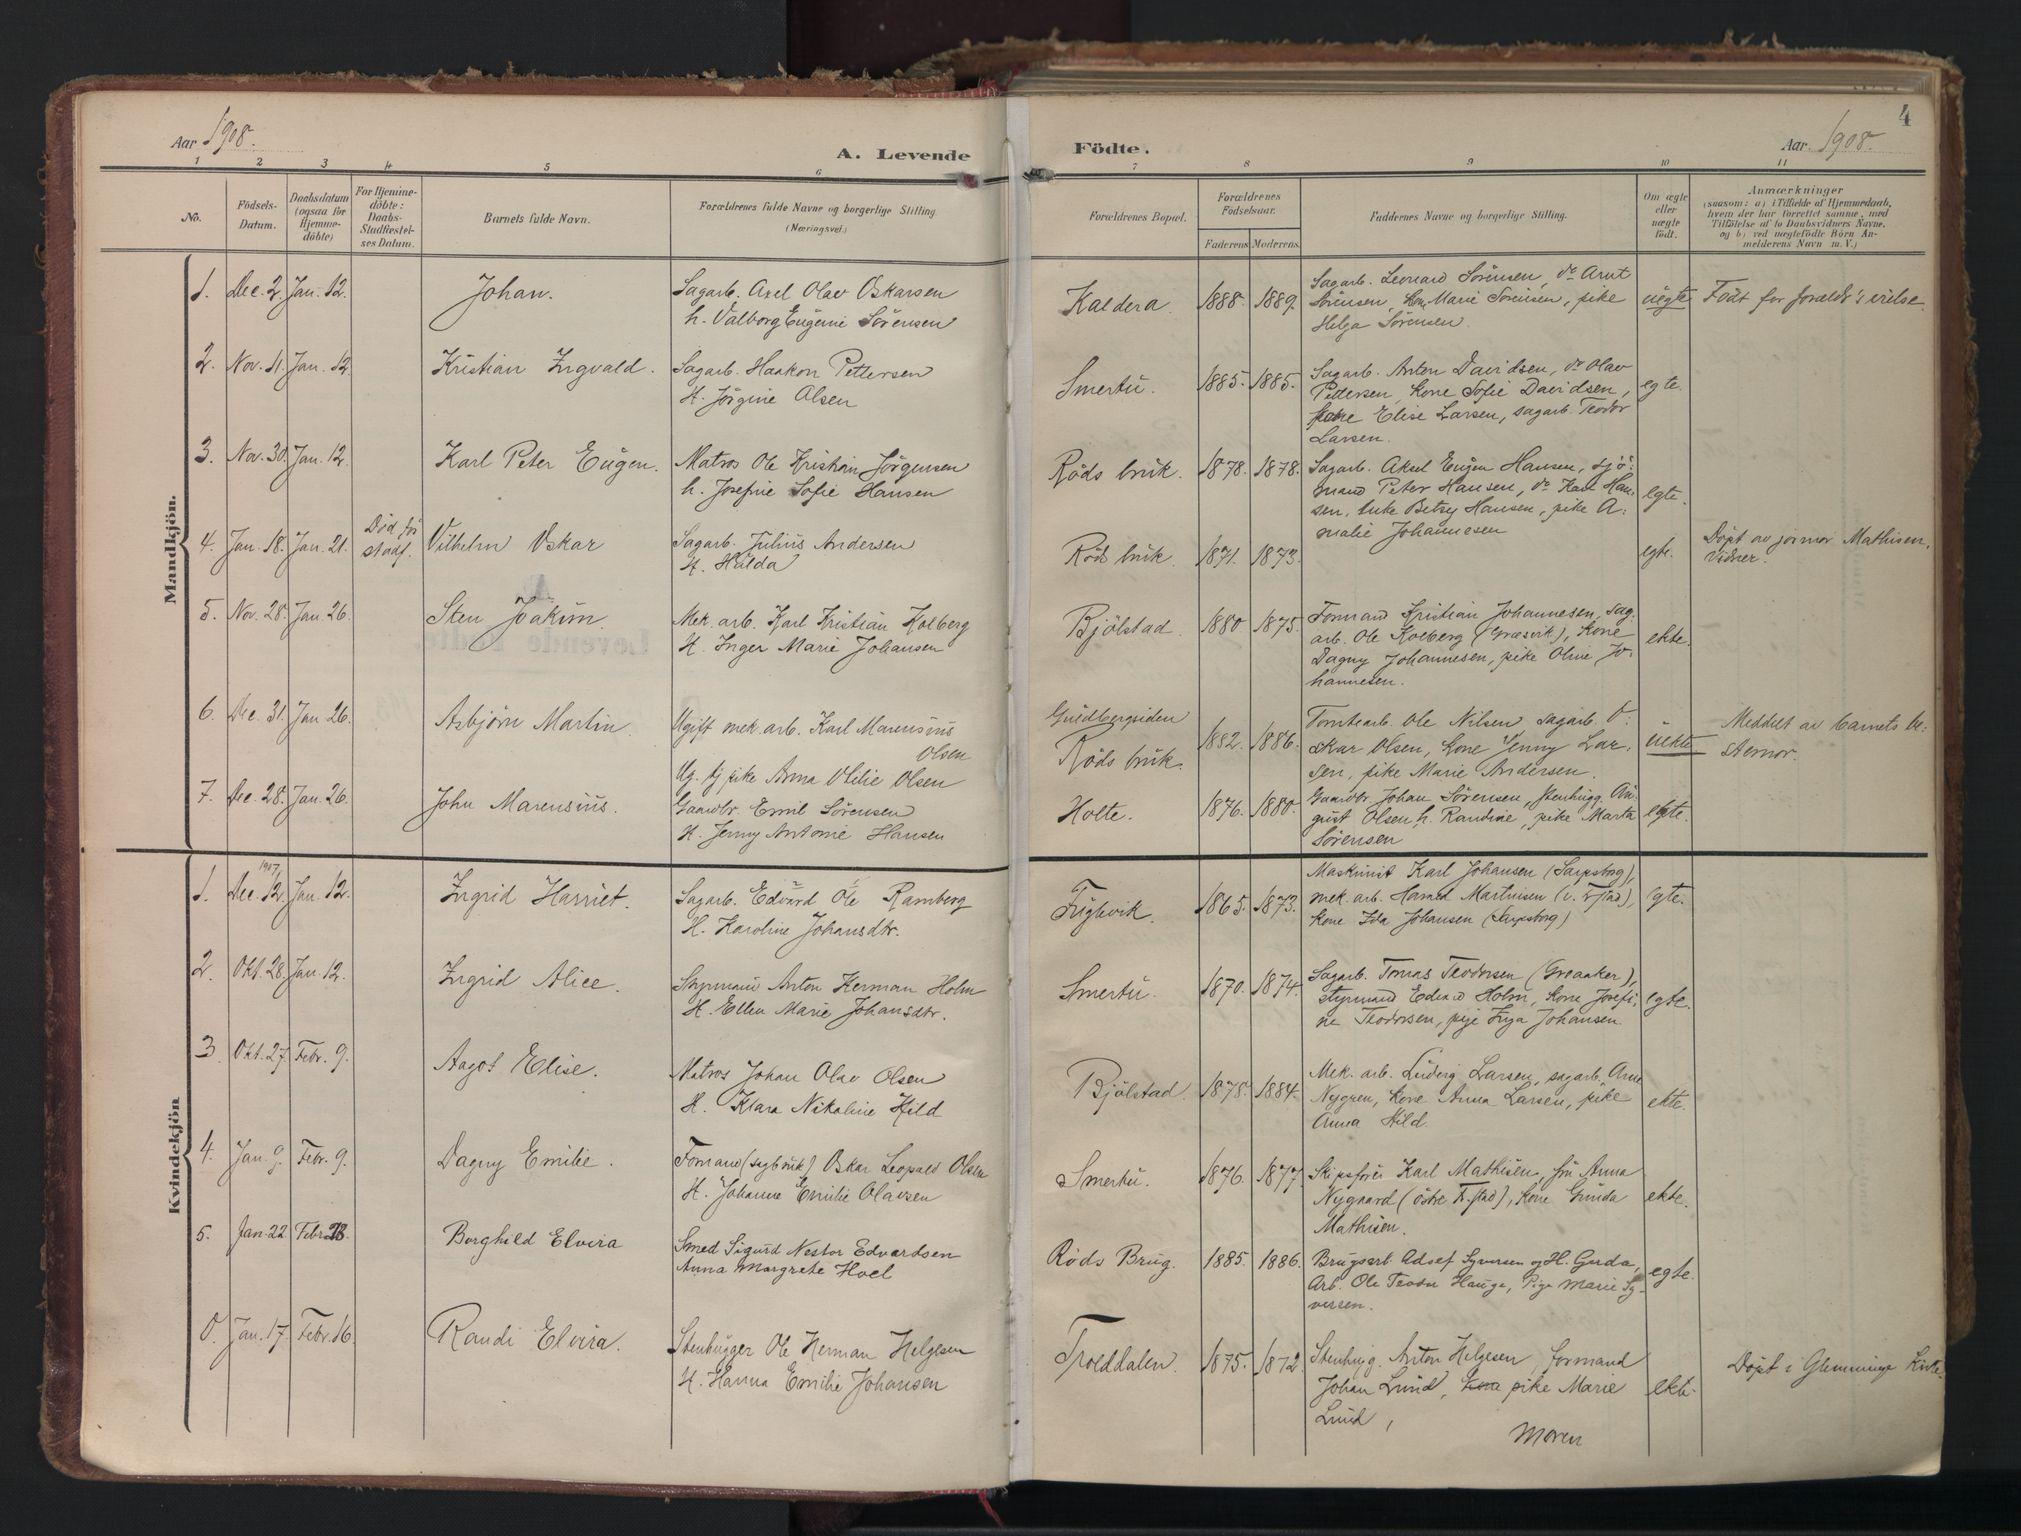 Aar 1908.
A. Levende
Födte.
Aar 1908.
4
1 2 3 4 5 6 7 8 9 10 11
No.
Födsels-
Datum.
Daabsdatum
(ogsaa for
Hjemme-
döbte)
For Hjemme-
döbte:
Daabs-
Stadfæstel-
ses Datum.
Barnets fulde Navn.
Forældrenes fulde Navne og borgerlige Stilling
(Næringsvei.)
Forældrenes Bopæl.
Forældrenes
Födselsaar.
Faderens Moderens
Faddernes Navne og borgerlige Stilling.
Om ægte
eller
uægte
födt.
Anmærkninger
(saasom: a) i Tilfælde af Hjemmedaab,
hvem der har forrettet samme, med
Tilföielse af to Daabsvidners Navne,
og b) ved uægtefödte Börn An-
melderens Navn m. V.)
Mandkjön.
1. Dec. 2. Jan. 12. Johan.
Sagarb. Axel Olav Oskarsen
h. Valborg Eugenie Sørensen
Kaldera. 1888. 1889.
Sagarb. Leonard Sørensen, do Arnt
Sørensen, Kone Marie Sørensen, pike
Helga Sørensen.
uegte Födt før foreldr's vielse.
2. Nov. 11. Jan. 12. Kristian Ingvald.
Sagarb. Haakon Pettersen
H. Jørgine Olsen
Smertu. 1885. 1885.
Sagarb. Anton Davidsen, do Olav
Pettersen, Kone Sofie Davidsen,
Elise Larsen, sagarb. Teodor
Larsen.
egte.
3. Nov. 30. Jan. 12. Karl Peter Eugen.
Matros Ole Kristian Jørgensen
h. Josefine Sofie Hansen
Røds bruk. 1878. 1878.
Sagarb. Aksel Eugen Hansen, sjø:
mand Peter Hansen, do Karl Han-
sen, enke Betsy Hansen, pike A:
malie Johannesen
egte.
4. Jan. 18. Jan. 21. Død før
stadf. Vilhelm Oskar
Sagarb. Julius Andersen
H. Hulda
Røds bruk. 1871. 1873.
egte.
Døpt av jormor Mathisen,
Vidner.
5. Nov. 28. Jan. 26. Sten Joakim.
Mek. arb. Karl Kristian Kolberg
H. Inger Marie Johansen
Bjølstad. 1880. 1875.
Formand Kristian Johannesen, sag
arb. Ole Kolberg (Græsvik), Kone
Dagny Johannesen, pike Oline Jo-
hannesen.
ekte.
6. Dec. 31. Jan 26. Asbjørn Martin.
Ugift mek. arb. Karl Marensius
Olsen
Ug. tj. pike Anna Otilie Olsen
Guldbergsiden
Røds bruk. 1882. 1886.
Tomtearb. Ole Nilsen sagarb. O:
skar Olsen, Kone Jenny Lar-
sen, pike Marie Andersen.
uekte
Meddelt av barnets be-
stemor.
7. Dec. 28. Jan. 26. John Marensius.
Gaardbr. Emil Sørensen
H. Jenny Antonie Hansen
Holte. 1876. 1880.
Gaardbr. Johan Sørensen, Stenhugg. Au:
gust Olsen h. Randine, pike Marta
Sørensen
egte.
Kvindekjön
1907
1. Dec. 12. Jan. 12. Ingrid Harriet.
Sagarb. Edvard Ole Ramberg
H. Karoline Johansdtr.
Fuglevik. 1865. 1873.
Maskinist Karl Johansen (Sarpsborg),
mek. arb. Harald Martinisen (v. Fr.stad),
Kone Ida Johansen (Sarpsborg)
egte.
2. Okt. 28. Jan. 12. Ingrid Alice.
Styrmand Anton Herman Holm
H. Ellen Marie Johansdtr.
Smertu. 1870. 1874.
Sagarb. Tomas Teodorsen (Greaaker),
styrmand Edvard Holm, Kone Josefi-
ne Teodorsen, pige Inga Johansen.
egte.
3. Okt. 27. Febr. 9. Aagot Elise.
Matros Johan Olav Olsen
H. Klara Nikoline Hild
Bjølstad. 1878. 1884.
Mek. arb. Ludvig Larsen, sagarb. Arne
Nygren, Kone Anna Larsen, pike
Anna Hild.
ekte.
4. Jan. 9. Febr. 9. Dagny Emilie.
Formand (sagbruk) Oskar Leopold Olsen
H. Johanne Emilie Olavsen
Smertu. 1876. 1877.
Skipsfører Karl Mathisen, fru Anna
Nygaard (østre Fr.stad), Kone Gunda
Mathisen.
ekte.
5. Jan. 22 Febr. 23. Borghild Elvira
Smed Sigurd Nestor Edvardsen
Anna Margrete Hoel
Røds Brug. 1885. 1886.
Brugsarb. Adolf Syversen og H. Gerda,
Arb. Ole Teodor Hauge, Pige Marie Sy-
versen.
egte.
Jan. 17. Febr. 16. Randi Elvira.
Stenhugger Ole Herman Helgesen
H. Hanna Emilie Johansen
Trolddalen. 1875. 1872
Stenhug. Anton Helgesen, formand
Johan Lund, Kone pike Marie
Lund,
Moren
ekte.
Døpt i Glemminge Kirke.